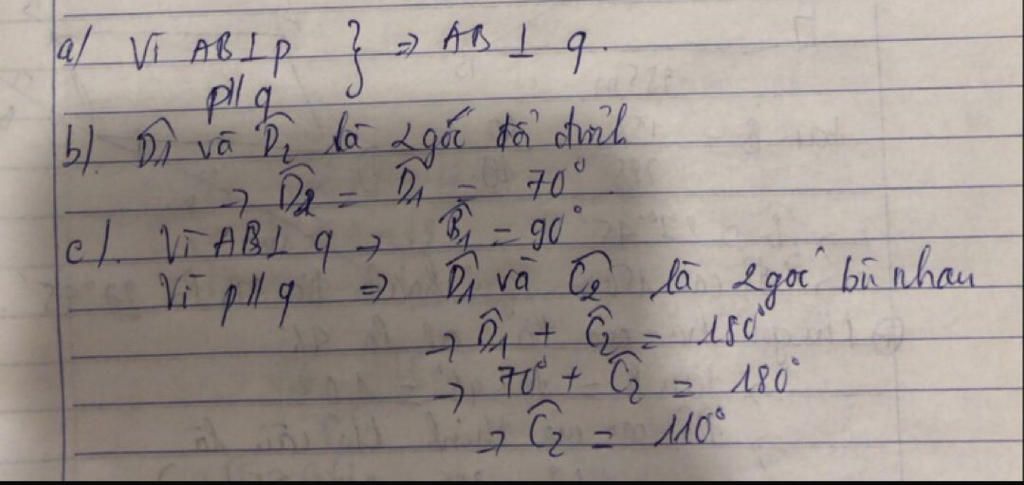 a/ Vì AB⊥p } => AB ⊥ q.
p//q
b/. D̂1 và D̂2 là 2 góc đối đỉnh
→ D̂2 = D̂1 = 70°
c/. Vì AB⊥ q → B̂1 = 90°
Vì p//q => D̂1 và Ĉ2 là 2 góc bù nhau
→ D̂1 + Ĉ2 = 180°
→ 70° + Ĉ2 = 180°
→ Ĉ2 = 110°